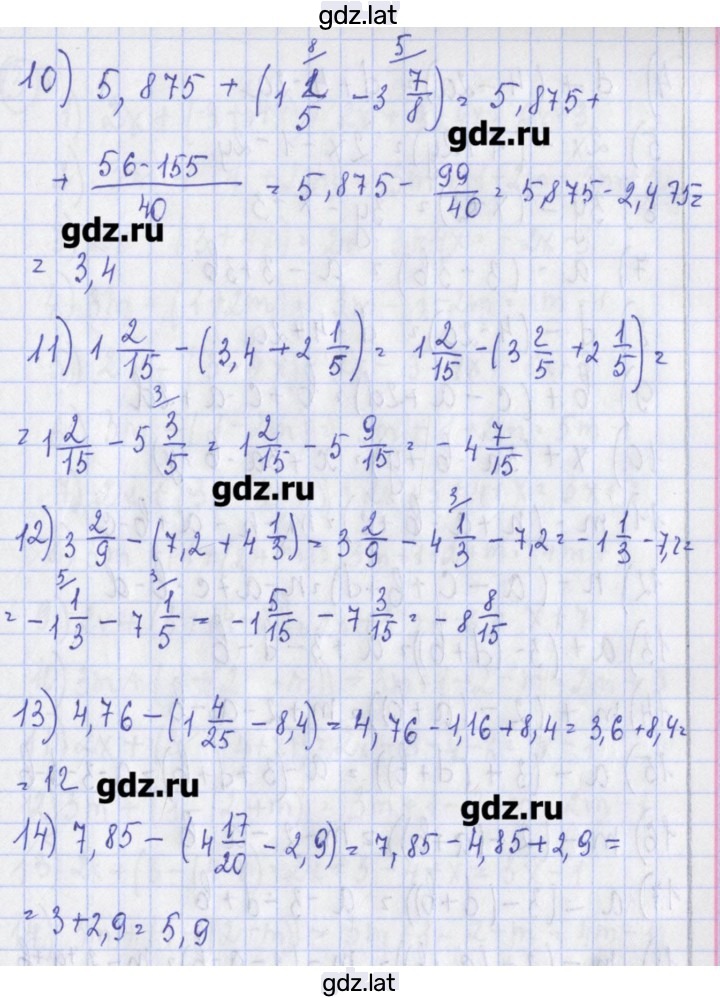 gdz.lat
10) 5,875 + (1 2/5 - 3 7/8) = 5,875 +
8 5
gdz.ru
+ (56 - 155)/40 = 5,875 - 99/40 = 5,875 - 2,475 =
gdz.ru
= 3,4
11) 1 2/15 - (3,4 + 2 1/5) = 1 2/15 - (3 2/5 + 2 1/5) =
3
= 1 2/15 - 5 3/5 = 1 2/15 - 5 9/15 = - 4 7/15
gdz.ru
3
12) 3 2/9 - (7,2 + 4 1/3) = 3 2/9 - 4 1/3 - 7,2 = - 1 1/3 - 7,2 =
5 3
= - 1 1/3 - 7 1/5 = - 1 5/15 - 7 3/15 = - 8 8/15
13) 4,76 - (1 4/25 - 8,4) = 4,76 - 1,16 + 8,4 = 3,6 + 8,4 =
= 12
gdz.ru
gdz.ru
14) 7,85 - (4 17/20 - 2,9) = 7,85 - 4,85 + 2,9 =
= 3 + 2,9 = 5,9
gdz.lat